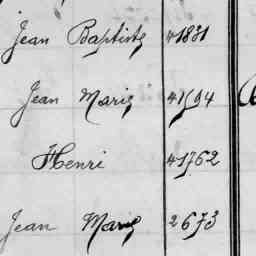 Jean Baptiste 41831
Jean Marie 41594
Henri 41762
Jean Marie 2673